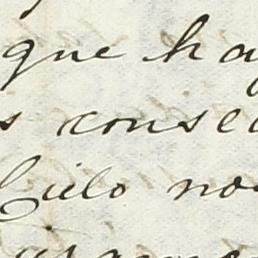 que ha
s conse
Cielo no